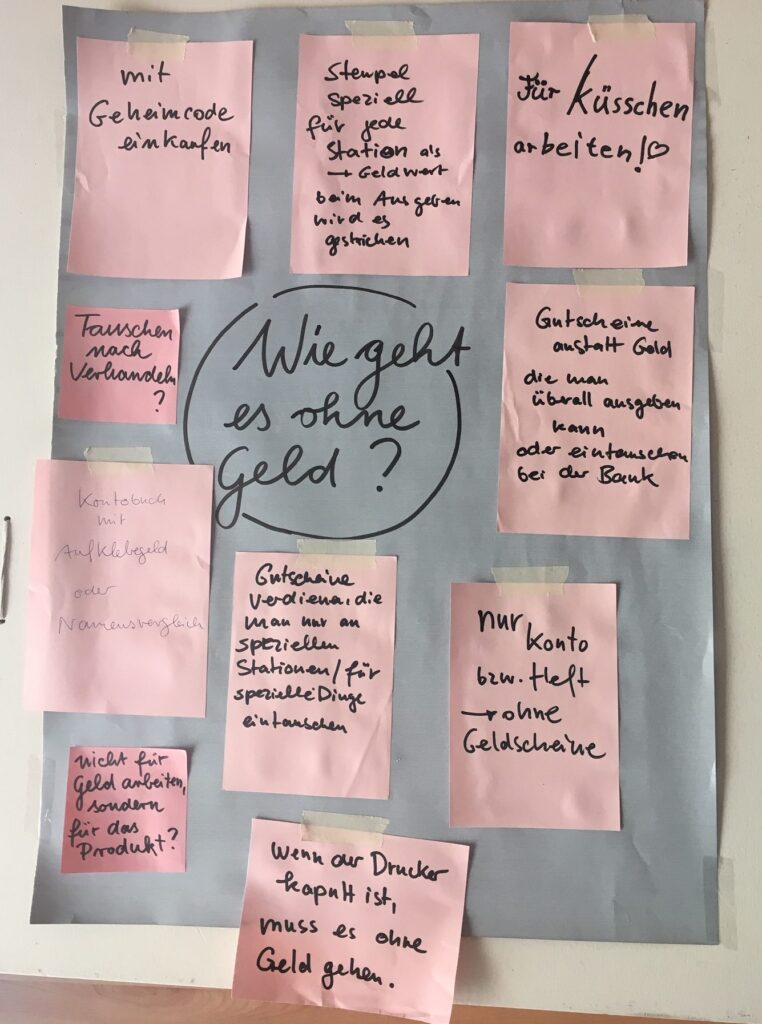 mit
Geheimcode
einkaufen
Stempel
speziell
für jede
Station als
→ Geldwert
beim Ausgeben
wird es
gestrichen
Für Küsschen
arbeiten!♡
Tauschen
nach
Verhandeln
?
Wie geht
es ohne
Geld?
Gutscheine
anstatt Geld
die man
überall ausgeben
kann
oder eintauschen
bei der Bank
Kontobuch
mit
Aufklebegeld
oder
Namensvergleich
Gutscheine
verdienen, die
man nur an
speziellen
Stationen/für
spezielle Dinge
eintauschen
nur
Konto
bzw. Heft
→ ohne
Geldscheine
nicht für
Geld arbeiten,
sondern
für das
Produkt?
Wenn der Drucker
kaputt ist,
muss es ohne
Geld gehen.